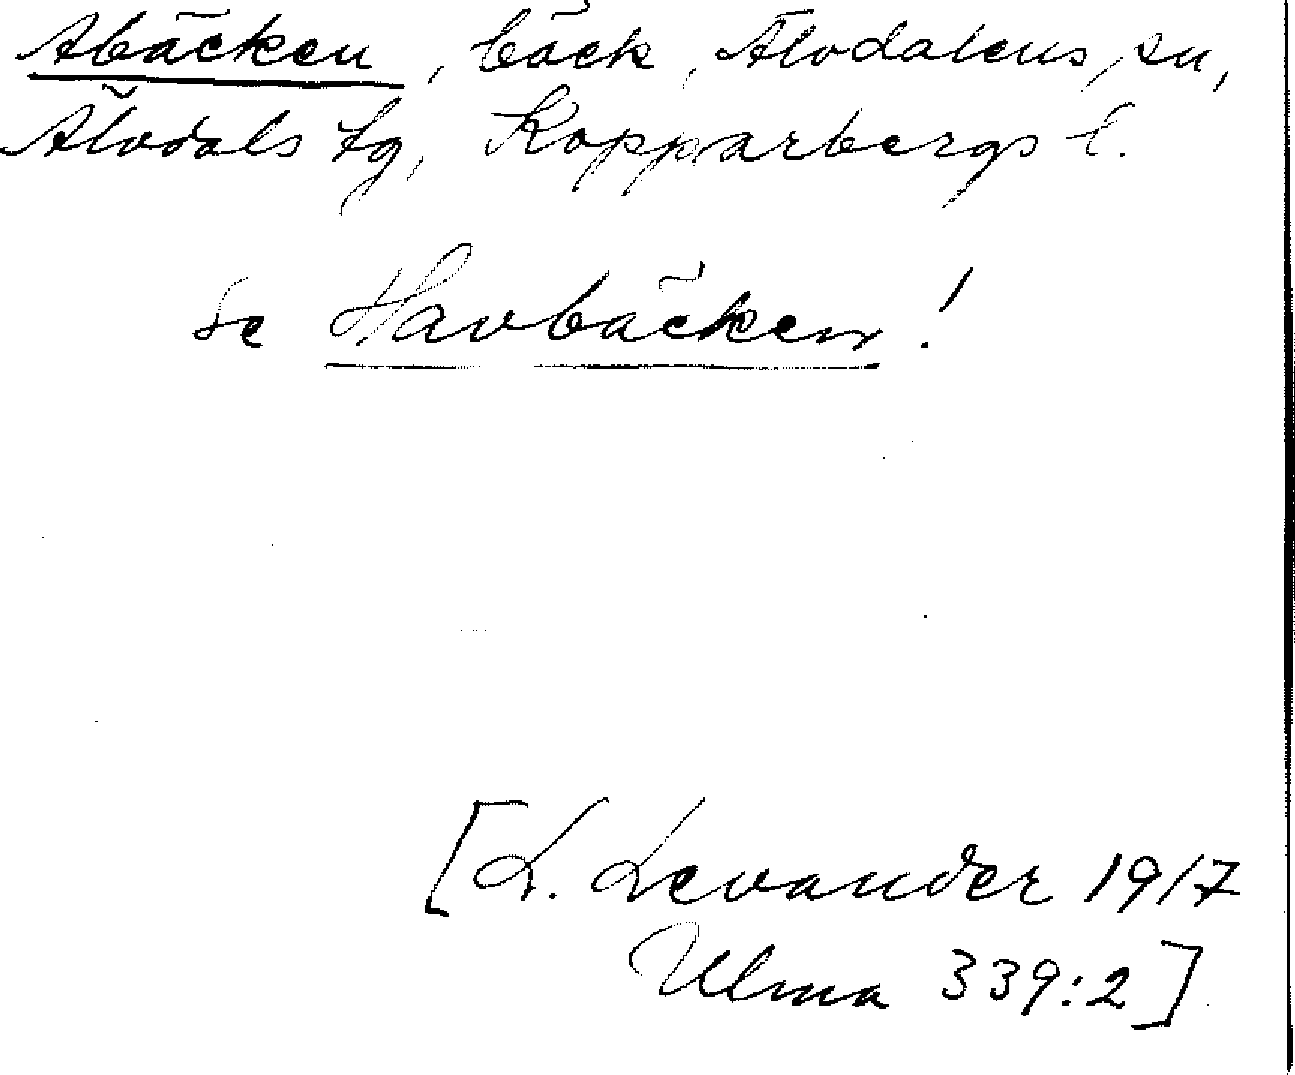 Abäcken, bäck, Älvdalens sn,
Älvdals tg, Kopparbergs l.
Se Havbäcken!
[L. Levander 1917
Ulma 339:2]